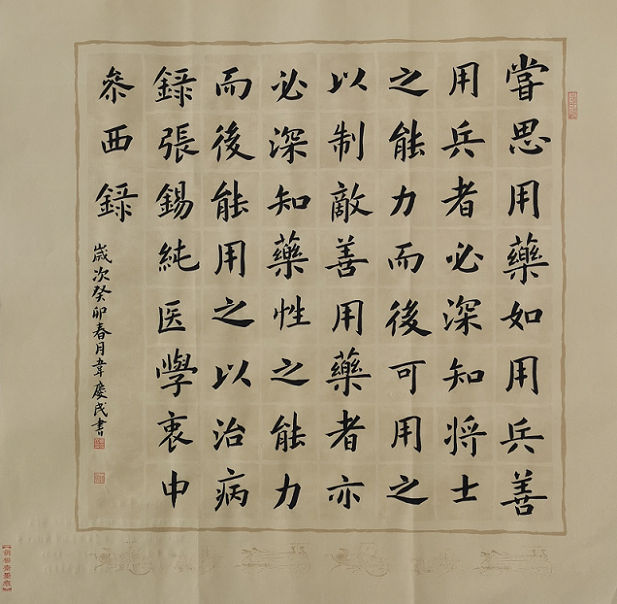 嘗思用藥如用兵善
用兵者必深知将士
之能力而後可用之
以制敵善用藥者亦
必深知藥性之能力
而後能用之以治病
録張錫純医學衷中
参西録
嵗次癸卯春月韋慶民書